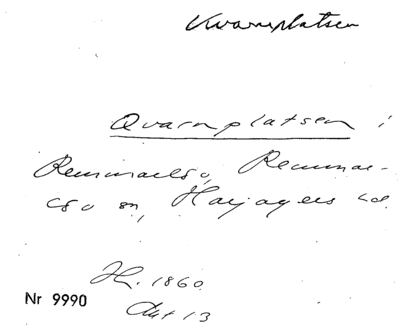 Kvarnplatsen
Qvarnplatsen i
Remmarlöv, Remmar-
lövs sn, Harjagers hd.
Hr. 1860
Akt 13
Nr 9990